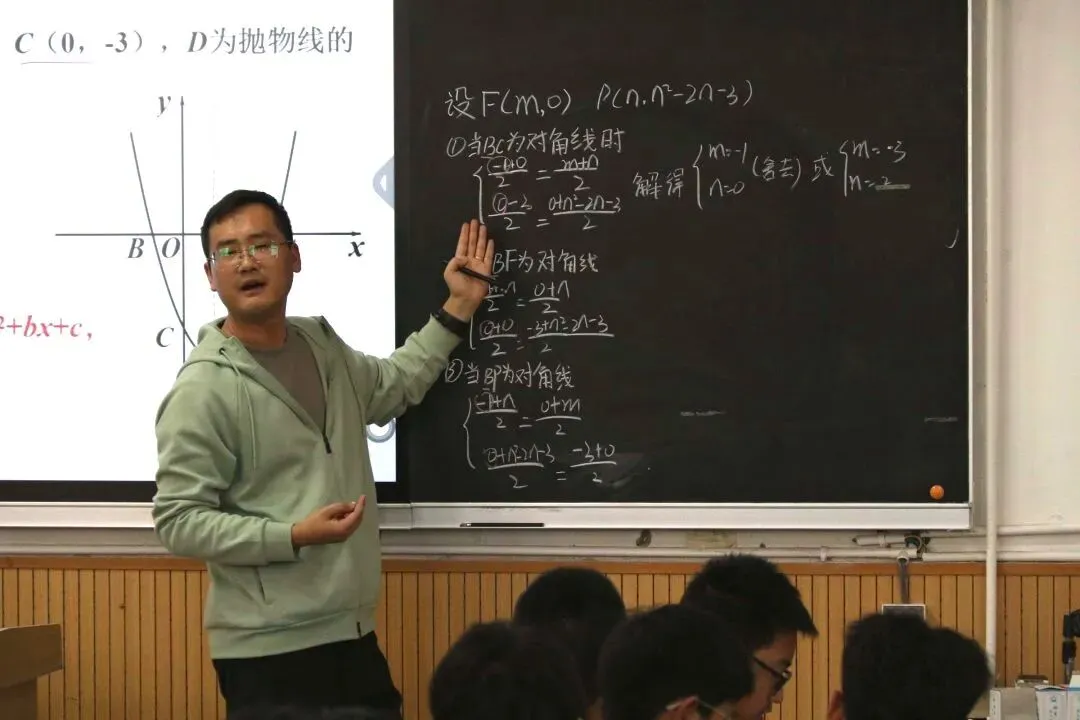 C（0，-3），D为抛物线的
y
B O x
C
²+bx+c，
设F(m,0) P(n,n²-2n-3)
①当BC为对角线时
{ (-1+0)/2 = (m+n)/2
(0-3)/2 = (0+n²-2n-3)/2
解得 { m=-1 n=0 (舍去) 或 { m=-3 n=2
BF为对角线
/2 = (0+n)/2
(0+0)/2 = (-3+n²-2n-3)/2
③当BP为对角线
{ (-1+n)/2 = (0+m)/2
(0+n²-2n-3)/2 = (-3+0)/2